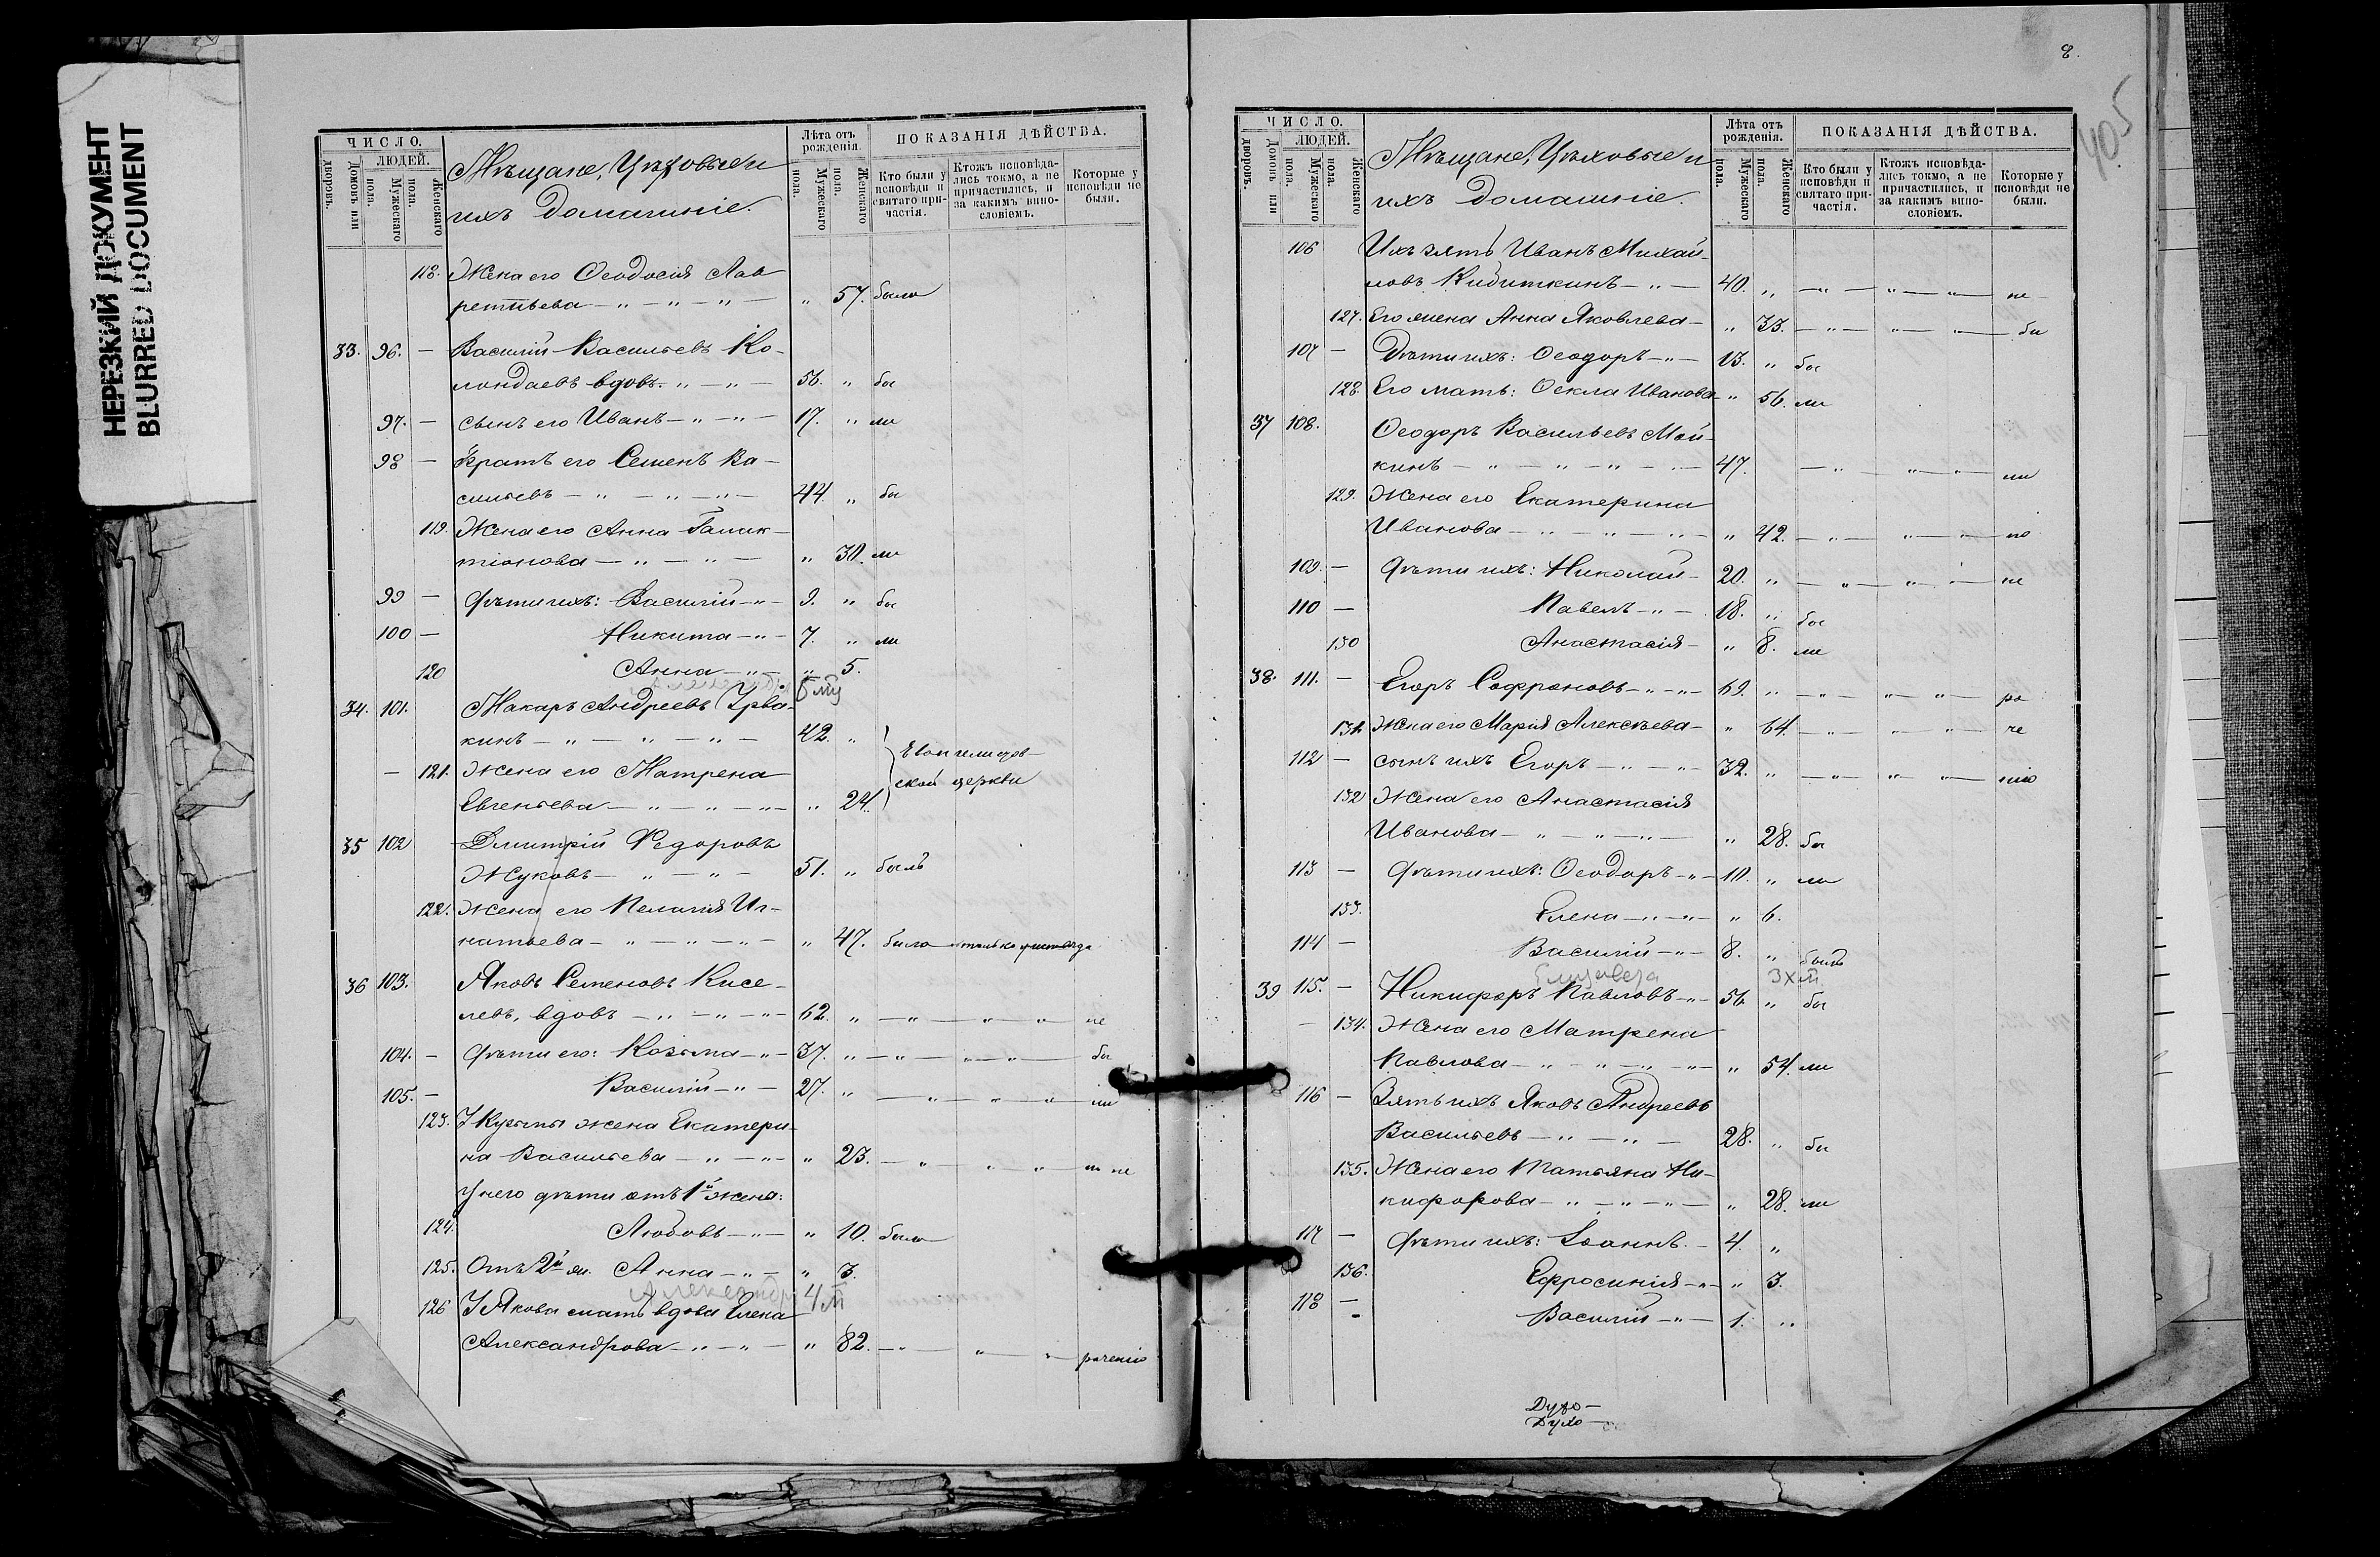 НЕРЕЗКИЙ ДОКУМЕНТ
BLURRED DOCUMENT
ЧИСЛО.
ЛЮДЕЙ.
Дворовъ.
Домовъ или
Мужескаго пола.
Женскаго пола.
Мѣщане, Цеховые и
ихъ домашніе.
Лѣта отъ рожденія.
Мужескаго пола.
Женскаго пола.
ПОКАЗАНІЯ ДѢЙСТВА.
Кто были у исповѣди и святаго причастія.
Ктожъ исповѣдались токмо, а не причастились, и за какимъ винословіемъ.
Которые у исповѣди не были.
118. Жена его Ѳеодосія Лав
рентьева — „ — „ — „ — „ 57. была
33. 96. — Василій Васильевъ Ко-
лондаевъ вдовъ. „ — „ — 56. „ бы
97. — сынъ его Иванъ — „ — „ — 17. „ ли
98 — братъ его Семенъ Ва-
сильевъ — „ — „ — „ — 44. „ бы
119. Жена его Анна Галак-
тіонова — „ — „ — „ 30. ли
99 — Дѣти ихъ: Василій — „ — 9. „ бы
100 — Никита — „ — 7. „ ли
120 Анна — „ — „ 5.
34. 101. Макаръ Андреевъ Урва-
кинъ — „ — „ — „ — 42. „
Евангелистов-
ской церкви
— 121. Жена его Матрена
Евгеньева — „ — „ — „ — „ 24.
35 102 Дмитрій Ѳедоровъ
Жуковъ — „ — „ — 51. „ былъ
122. Жена его Пелагія Иг-
натьева — „ — „ — „ — „ 47. была только
36 103. Яковъ Семеновъ Кисе-
левъ, вдовъ — „ — „ — „ — 62. „ — „ — „ — „ — не
104. — Дѣти его: Козьма — „ — 37. „ — „ — „ — „ — бы
105. — Василій — „ — 27. „ — „ — „ — „ — ли
123. У Кузьмы жена Екатери-
на Васильева — „ — „ — „ 23. — „ — „ — „ — по не
У него дѣти отъ 1й жены:
124. Любовь — „ — „ 10. была
125. Отъ 2й ж. Анна — „ — „ 3.
Александр 4 м
126 У Якова мать вдова Елена
Александрова — „ — „ — „ 82. — „ — „ — „ — раченію
8.
405
ЧИСЛО.
ЛЮДЕЙ.
Дворовъ.
Домовъ или
Мужескаго пола.
Женскаго пола.
Мѣщане, Цеховые и
ихъ домашніе.
Лѣта отъ рожденія.
Мужескаго пола.
Женскаго пола.
ПОКАЗАНІЯ ДѢЙСТВА.
Кто были у исповѣди и святаго причастія.
Ктожъ исповѣдались токмо, а не причастились, и за какимъ винословіемъ.
Которые у исповѣди не были.
106 Ихъ зять Иванъ Михай-
ловъ Кибиткинъ — „ — 40. „ — „ — „ — „ — не
127. Его жена Анна Яковлева — „ 33. — „ — „ — „ — бы
107 — Дѣти ихъ: Ѳеодоръ — „ — 13. „ бы
128. Его мать: Ѳекла Иванова — „ 56. ли
37 108. Ѳеодоръ Васильевъ Мой-
кинъ — „ — „ — „ — „ — 47. — „ — „ — „ — ли
129. Жена его Екатерина
Иванова — „ — „ — „ — „ 42. — „ — „ — „ — по
109. — Дѣти ихъ: Николай — 20. „ — „ — „ — „ — не
110 — Павелъ — „ — 18. „ бы
130 Анастасія — „ 8. ли
38. 111. — Егоръ Софроновъ — „ — „ — 69. „ — „ — „ — „ — ра
131. Жена его Марія Алексѣева — „ 64. — „ — „ — „ — че
112 — сынъ ихъ Егоръ — „ — „ — 32. „ — „ — „ — „ — нію
132 Жена его Анастасія
Иванова — „ — „ — „ — „ 28. бы
113 — Дѣти ихъ: Ѳеодоръ — „ — 10. „ ли
133. Елена — „ — „ — „ 6.
114 — Василій — „ — 8. „ былъ
3х м
39 115. — Никифоръ Павловъ — „ — 56. „ бы
— 134. Жена его Матрена
Павлова — „ — „ — „ — „ — „ 54. ли
116 — Зять ихъ Яковъ Андреевъ
Васильевъ — „ — „ — 28. „ бы
135. Жена его Татьяна Ни-
кифорова — „ — „ — „ — „ 28. ли
117 — Дѣти ихъ: Іоаннъ. — 4. „
136. Ефросинія — „ — „ 3.
118 — Василій — „ — 1. „
Духо-
Духо-